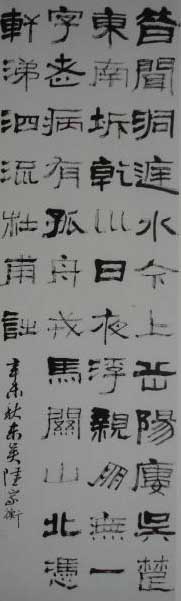 昔聞洞庭水今上岳陽廔吳楚
東南坼乾巛日夜浮親朋無一
字老病有孤舟戎馬關山北憑
軒涕泗流杜甫詩
辛未秋東吳陸家衡